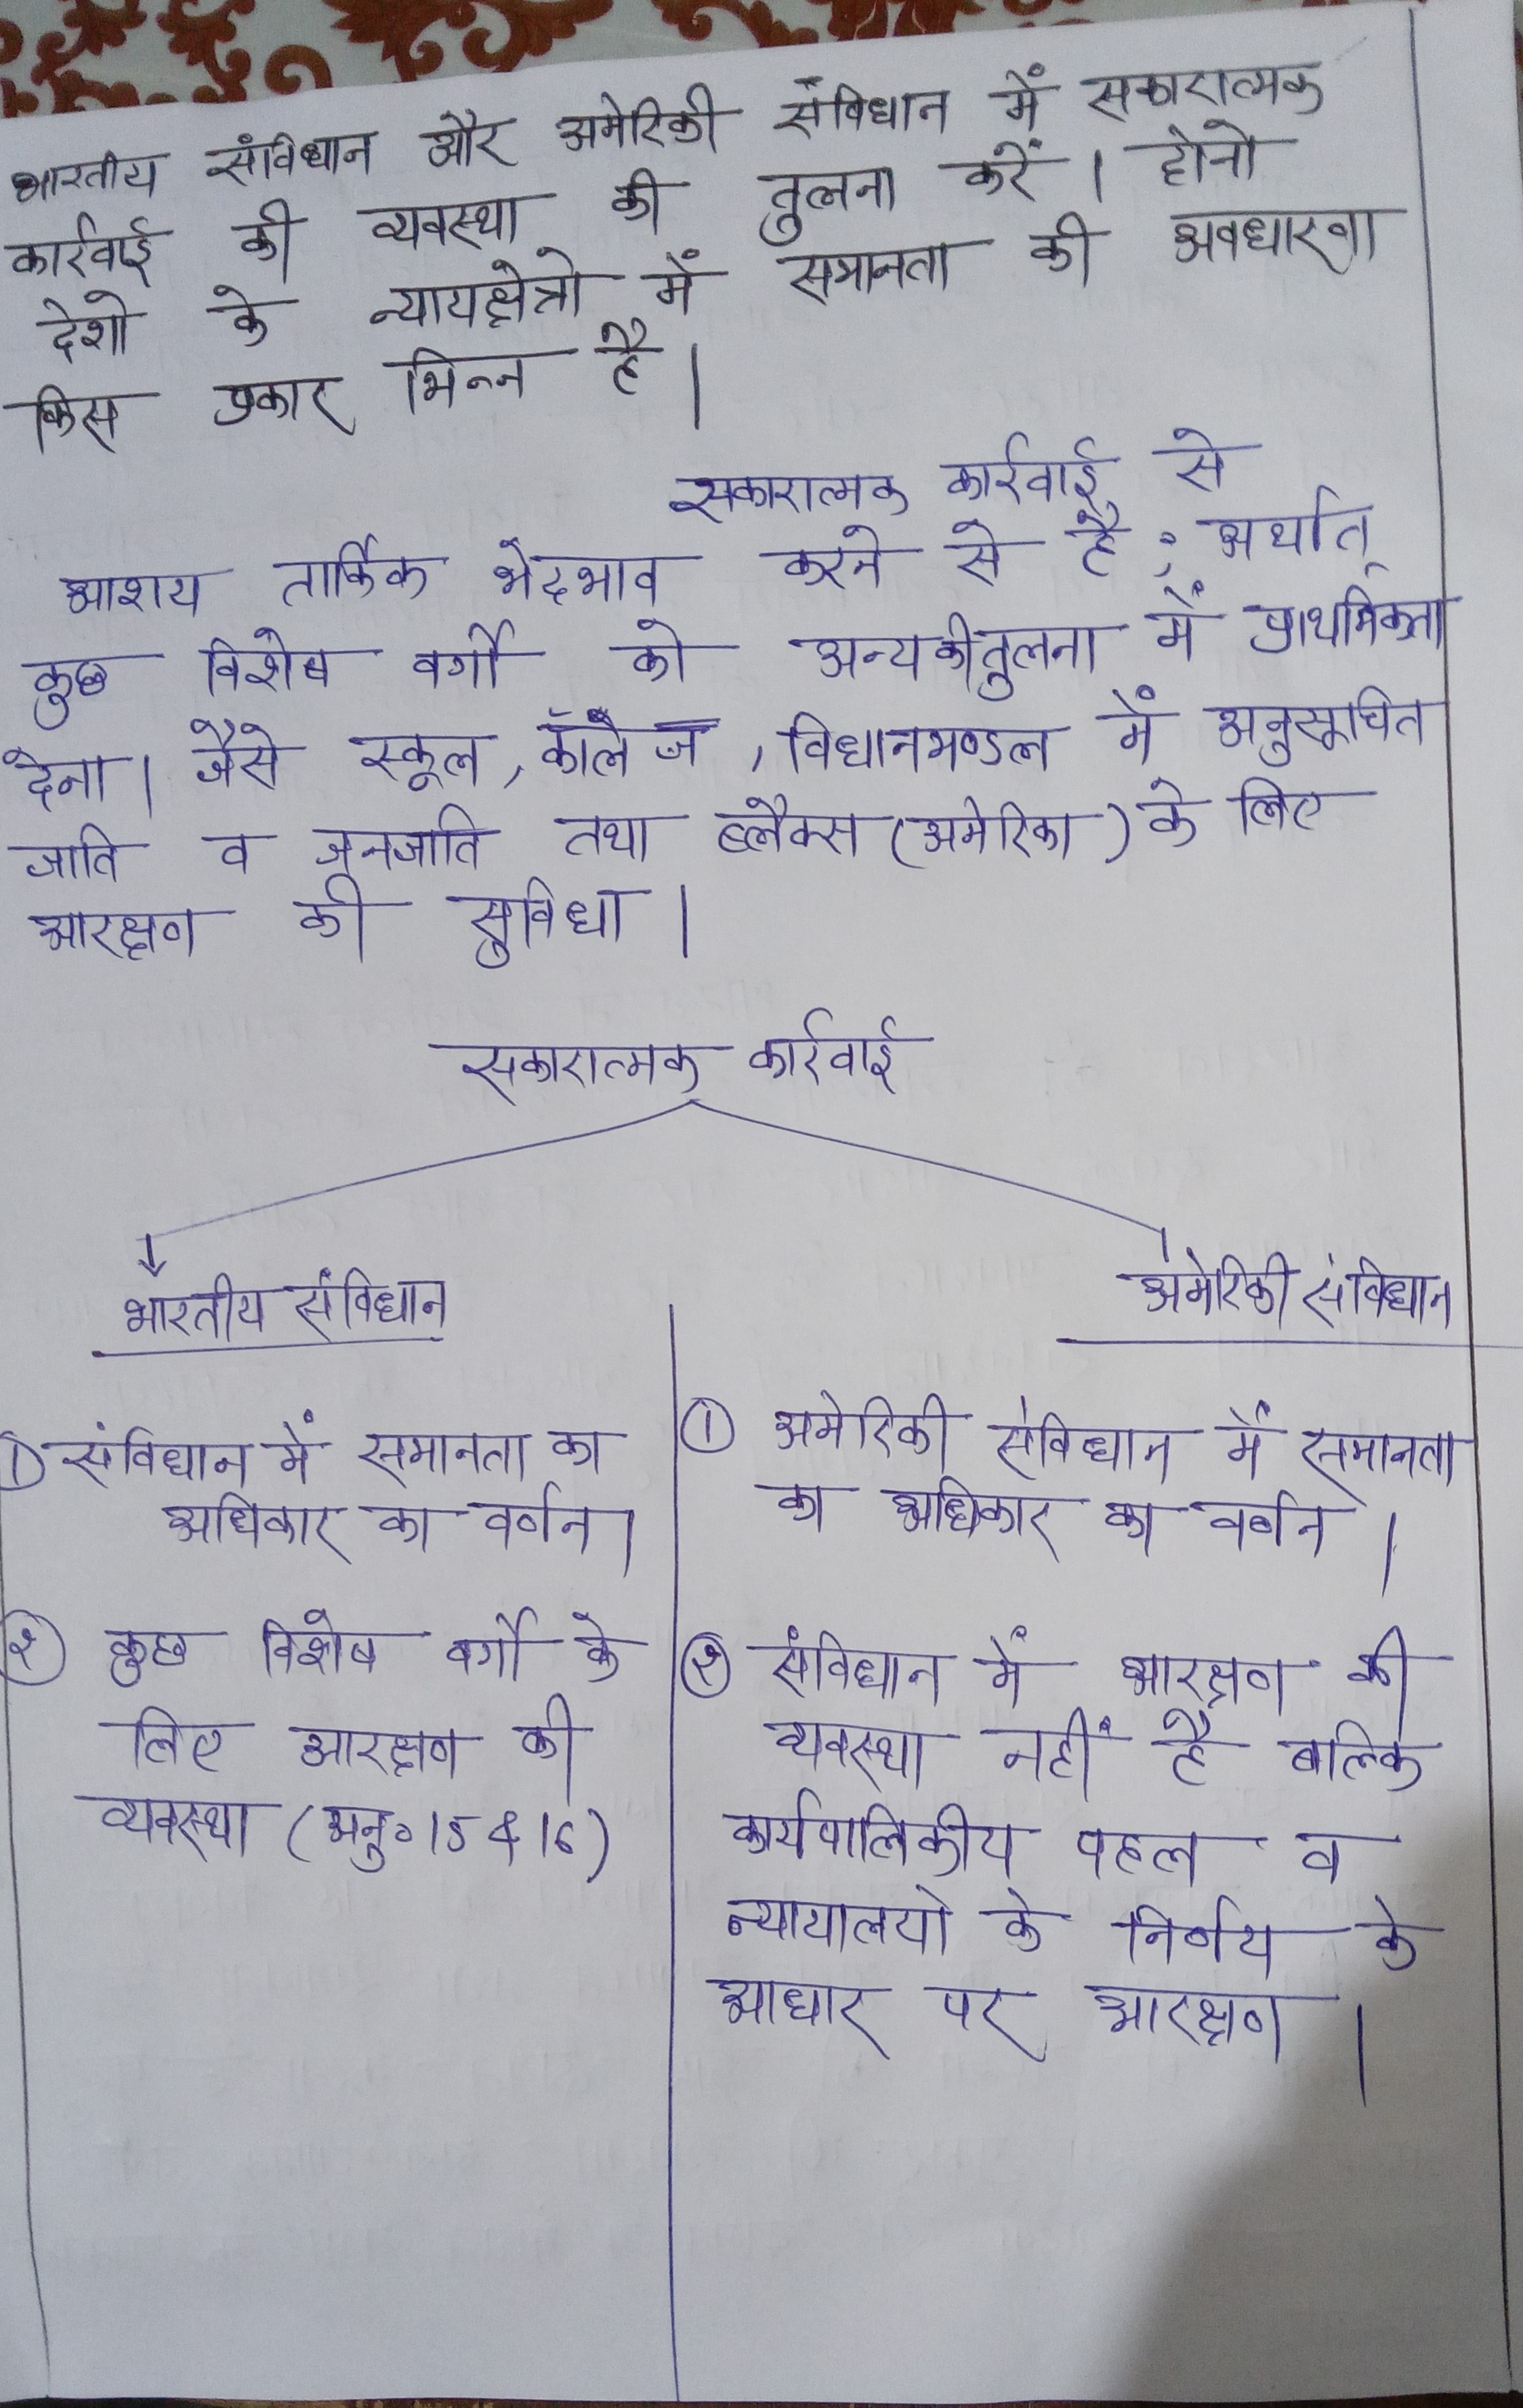 भारतीय संविधान और अमेरिकी संविधान में सकारात्मक
कार्रवाई की व्यवस्था की तुलना करें। दोनो
देशो के न्यायक्षेत्रो में समानता की अवधारणा
किस प्रकार भिन्न है।
सकारात्मक कार्रवाई से
आशय तार्किक भेदभाव करने से है; अर्थात्
कुछ विशेष वर्गो को अन्य की तुलना में प्राथमिकता
देना। जैसे स्कूल, कॉलेज, विधानमण्डल में अनुसूचित
जाति व जनजाति तथा ब्लैक्स (अमेरिका) के लिए
आरक्षण की सुविधा।
सकारात्मक कार्रवाई
भारतीय संविधान
① संविधान में समानता का
अधिकार का वर्णन।
② कुछ विशेष वर्गो के
लिए आरक्षण की
व्यवस्था (अनु० 15 & 16)
अमेरिकी संविधान
① अमेरिकी संविधान में समानता
का अधिकार का वर्णन।
② संविधान में आरक्षण की
व्यवस्था नहीं है बल्कि
कार्यपालिकीय पहल व
न्यायालयो के निर्णय के
आधार पर आरक्षण।